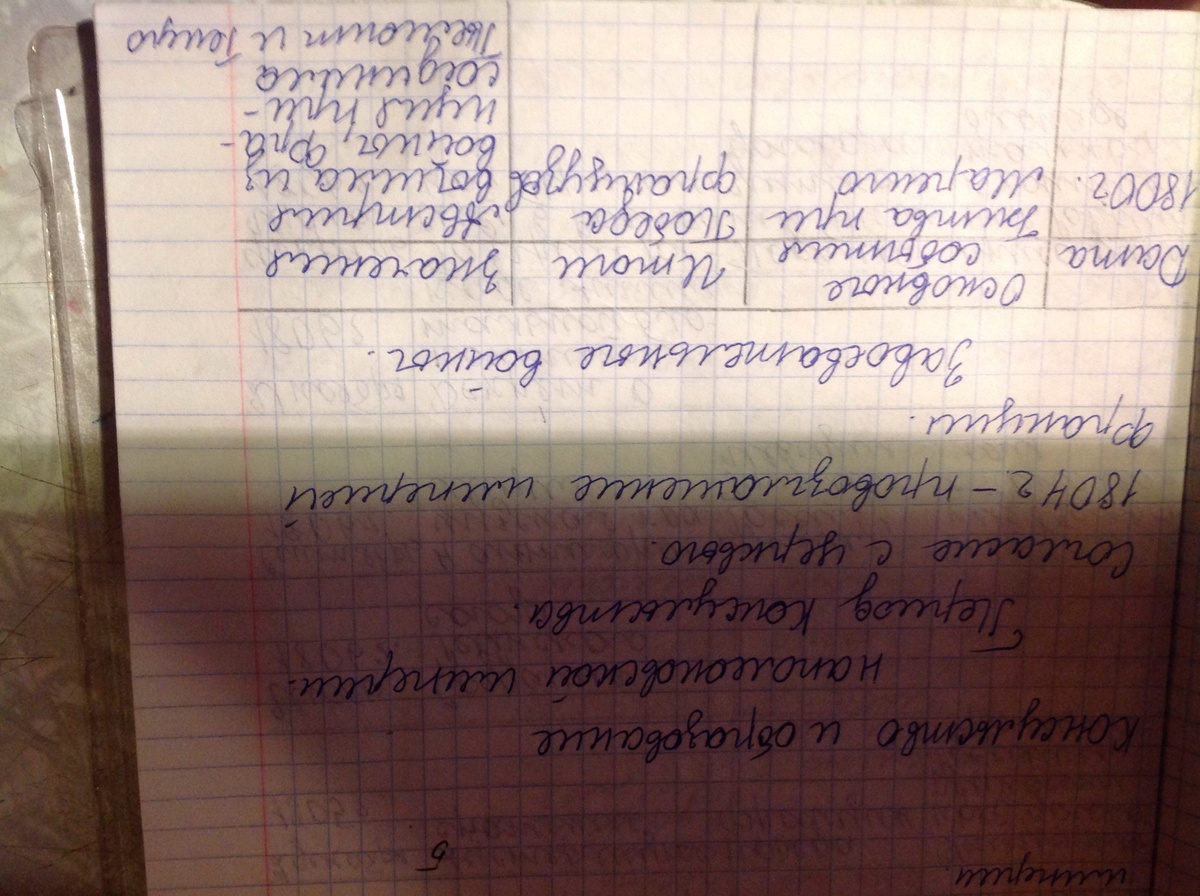 империи.
5
Консульство и образование
наполеоновской империи.
Период Консульства.
Согласие с церковью.
1804 г. – провозглашение империей
Франции.
Завоевательные войны.
Дата
Основные
события
Итоги
Значения
1800г.
Битва при
Маренго
Победа
французов
Австрия
вышла из
войны, фра-
нция при-
соединила
Пьемонт и Геную